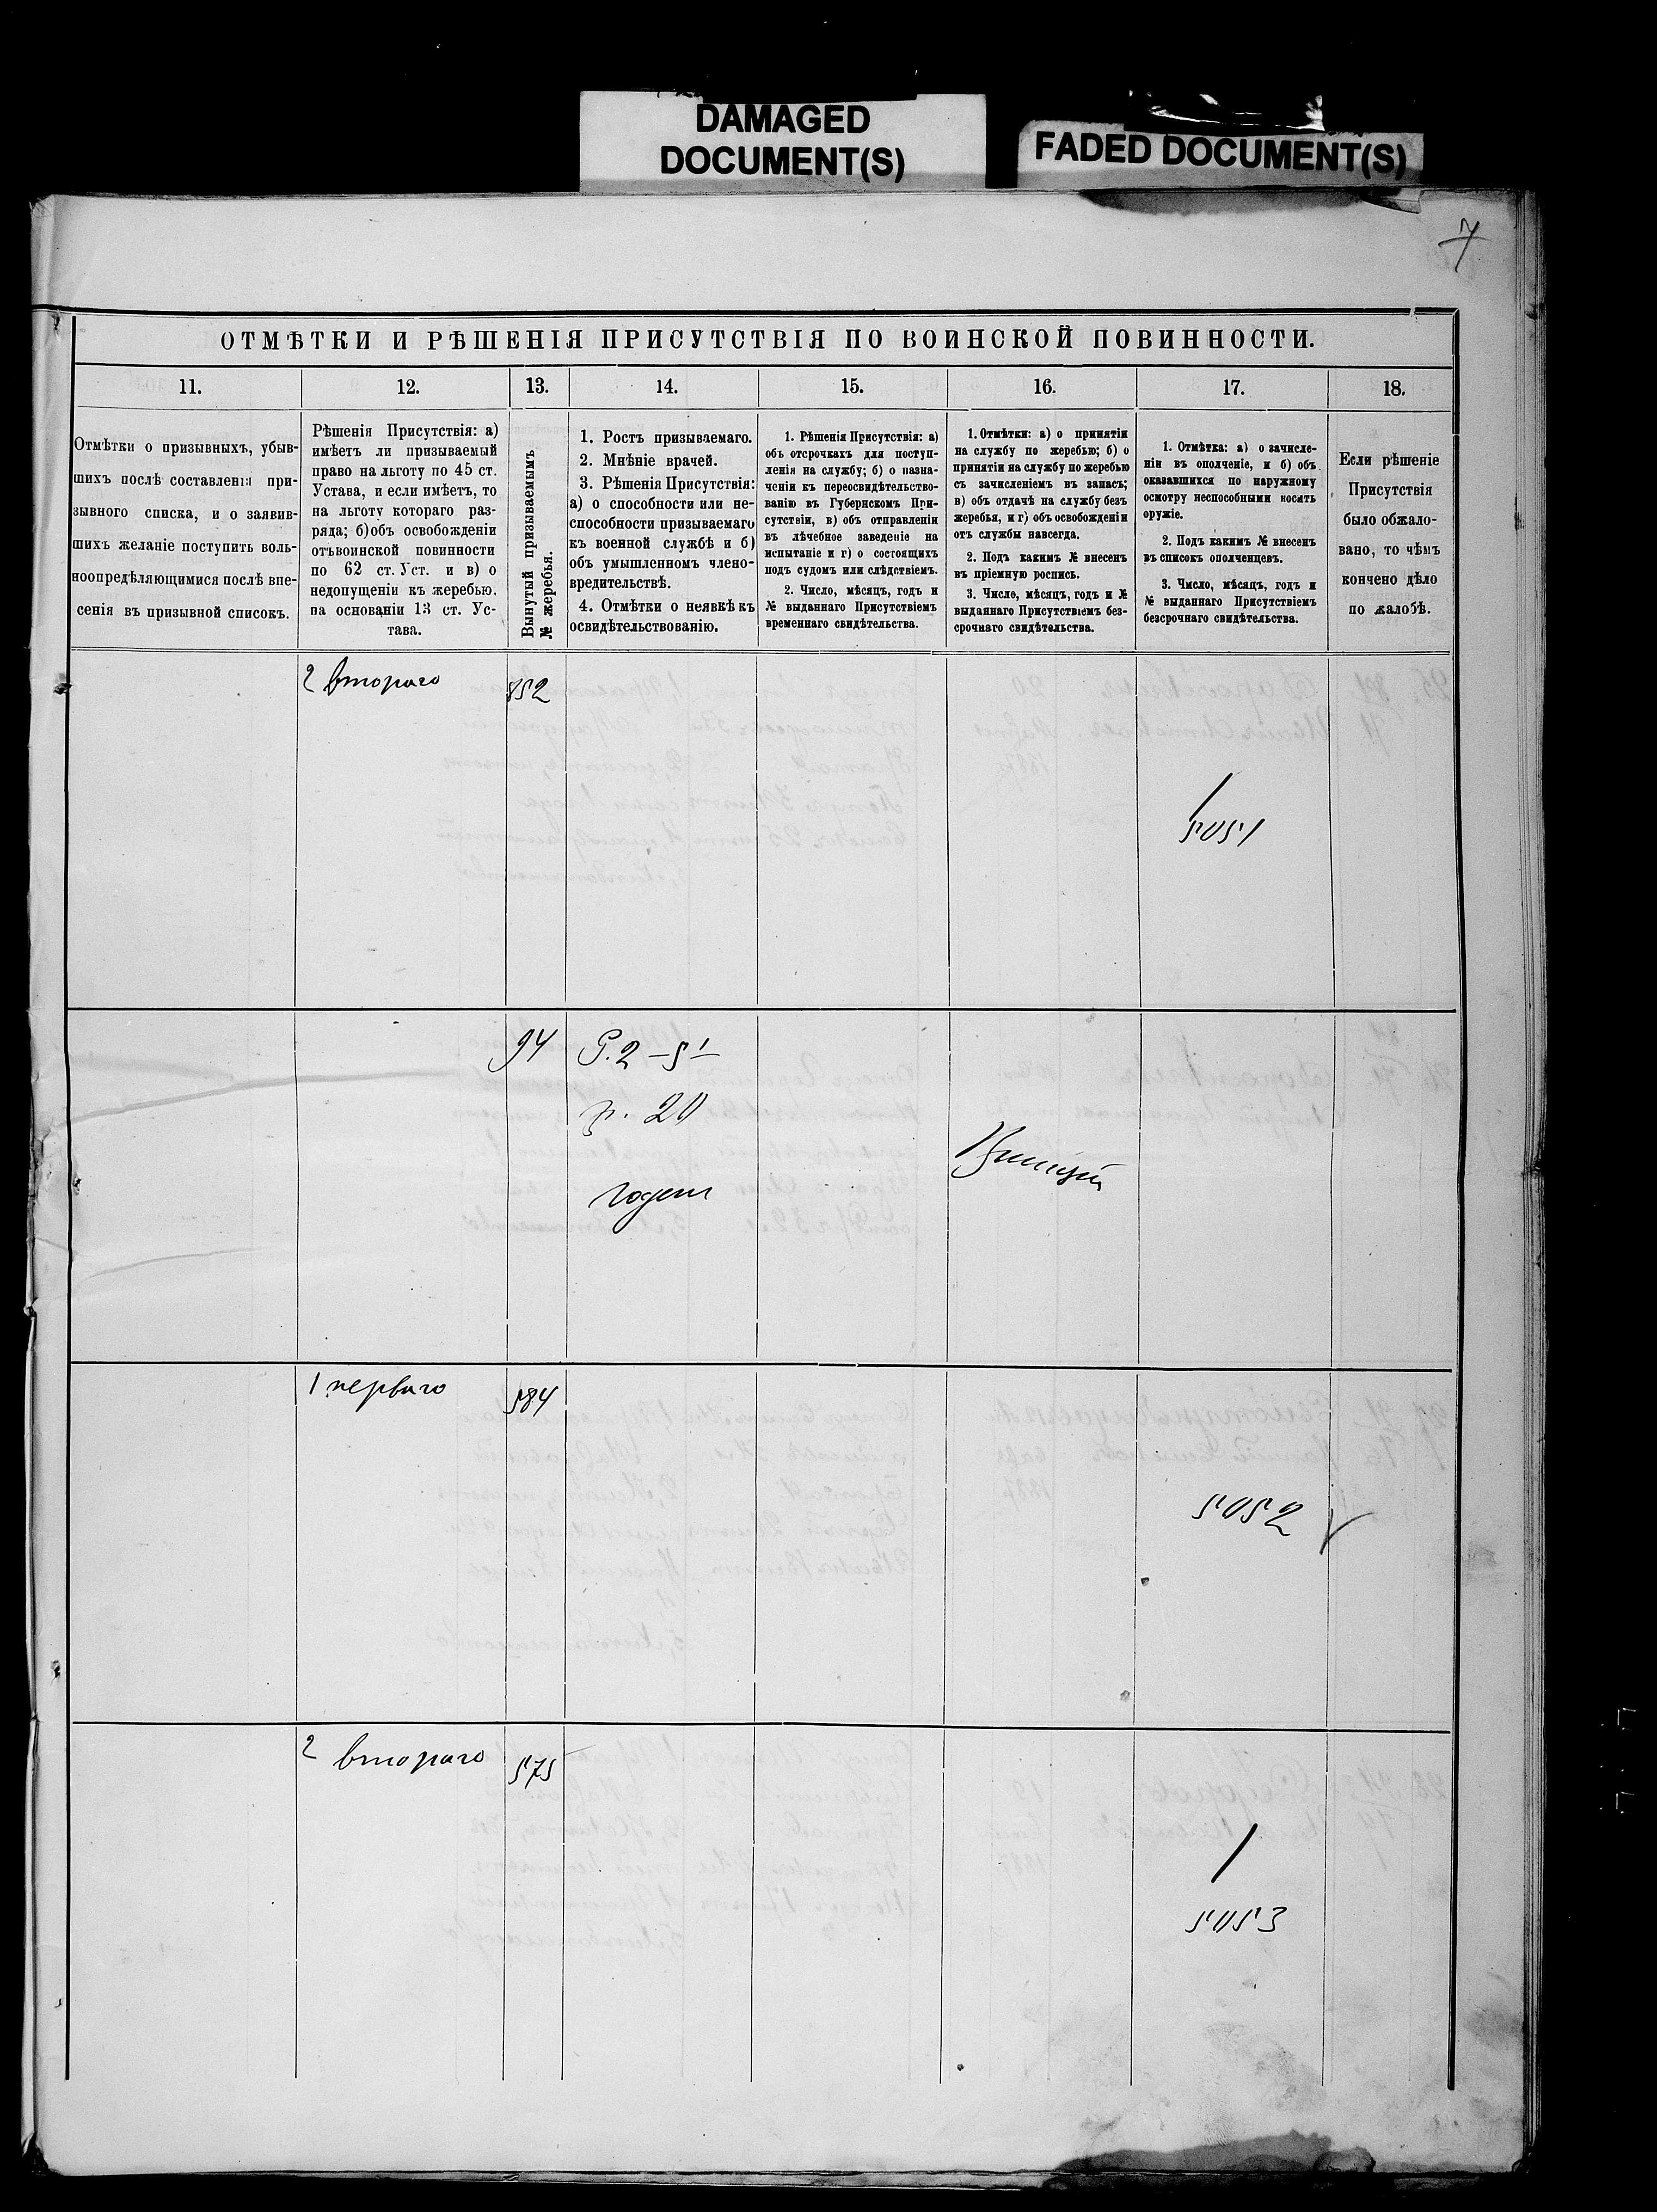 DAMAGED
DOCUMENT(S)
FADED DOCUMENT(S)
7
ОТМѢТКИ И РѢШЕНІЯ ПРИСУТСТВІЯ ПО ВОИНСКОЙ ПОВИННОСТИ.
11.
12.
13.
14.
15.
16.
17.
18.
Отмѣтки о призывныхъ, убыв-
шихъ послѣ составленія при-
зывного списка, и о заявив-
шихъ желаніе поступить воль-
ноопредѣляющимися послѣ вне-
сенія въ призывной списокъ.
Рѣшенія Присутствія: а)
имѣетъ ли призываемый
право на льготу по 45 ст.
Устава, и если имѣетъ, то
на льготу котораго раз-
ряда; б)объ освобожденіи
отъвоинской повинности
по 62 ст. Уст. и в) о
недопущеніи къ жеребью.
на основаніи 13 ст. Ус-
тава.
Вынутый призываемымъ
№ жеребья.
1. Ростъ призываемаго.
2. Мнѣніе врачей.
3. Рѣшенія Присутствія:
а) о способности или не-
способности призываемаго
къ военной службѣ и б)
объ умышленномъ члено-
вредительствѣ.
4. Отмѣтки о неявкѣ къ
освидѣтельствованію.
1. Рѣшенія Присутствія: а)
объ отсрочкахъ для поступ-
ленія на службу; б) о назна-
ченіи къ переосвидѣтельство-
ванію въ Губернскомъ При-
сутствіи, в) объ отправленіи
въ лѣчебное заведеніе на
испытаніе и г) о состоящихъ
подъ судомъ или слѣдствіемъ.
2. Число, мѣсяцъ, годъ и
№ выданнаго Присутствіемъ
временнаго свидѣтельства.
1. Отмѣтки: а) о принятіи
на службу по жеребью; б) о
принятіи на службу по жеребью
съ зачисленіемъ въ запасъ;
в) объ отдачѣ на службу безъ
жеребья, и г) объ освобожденіи
отъ службы навсегда.
2. Подъ какимъ № внесенъ
въ пріемную роспись.
3. Число, мѣсяцъ, годъ и №
выданнаго Присутствіемъ без-
срочнаго свидѣтельства.
1. Отмѣтка: а) о зачисле-
ніи въ ополченіе, и б) объ
оказавшихся по наружному
осмотру неспособными носить
оружіе.
2. Подъ какимъ № внесенъ
въ списокъ ополченцевъ.
3. Число, мѣсяцъ, годъ и
№ выданнаго Присутствіемъ
безсрочнаго свидѣтельства.
Если рѣшеніе
Присутствія
было обжало-
вано, то чѣмъ
кончено дѣло
по жалобѣ.
2 второго
852
5051
94
20
годенъ
1 перваго
584
5052
2 второго
575
5053